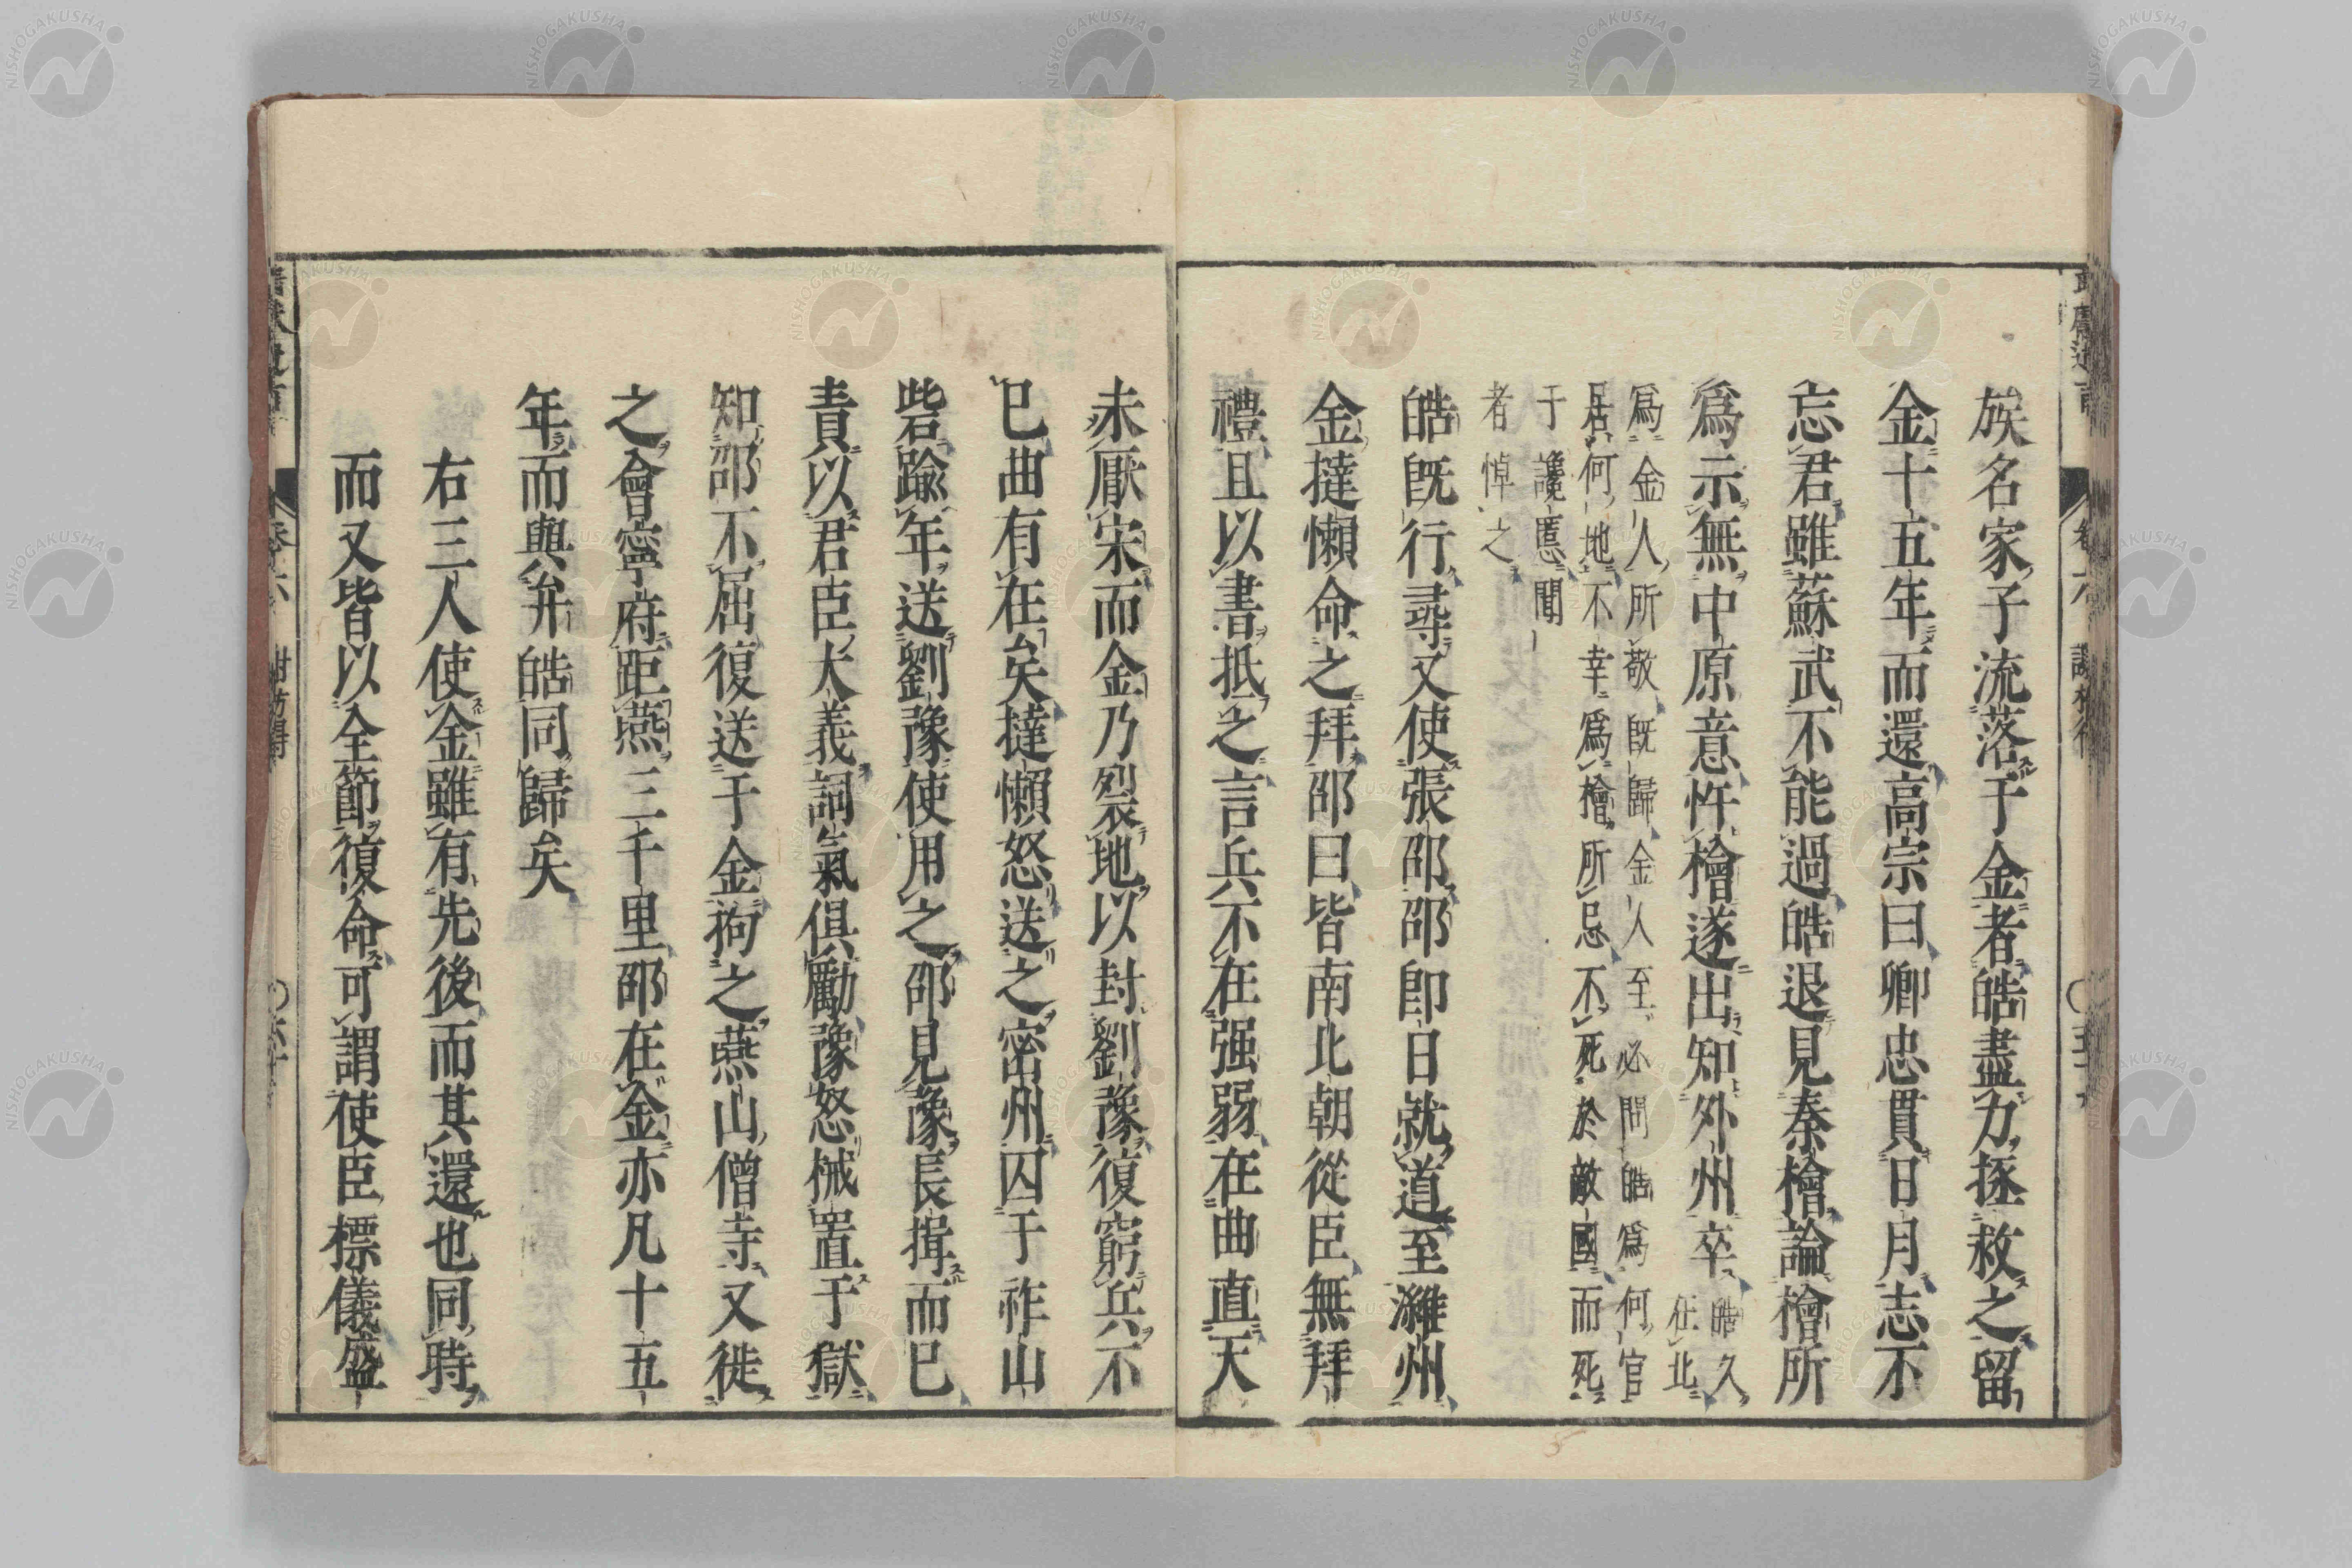 族名家子流落于金者皓盡力拯救之留
金十五年而還高宗曰卿忠貫日月志不
忘君雖蘇武不能過皓退見秦檜論檜所
爲示無中原意忤檜遂出知外州卒皓久
在北
爲金人所敬既歸金人至必問皓爲何官
居何地不幸爲檜所忌不死於敵國而死
于讒慝聞
者悼之
皓既行尋又使張邵邵卽日就道至濰州
金撻懶命之拜邵曰皆南北朝從臣無拜
禮且以書抵之言兵不在强弱在曲直天
未厭宋而金乃裂地以封劉豫復窮兵不
已曲有在矣撻懶怒送之密州囚于祚山
砦踰年送劉豫使用之邵見豫長揖而已
責以君臣大義詞氣俱勵豫怒械置于獄
知邵不屈復送于金拘之燕山僧寺又徙
之會寧府距燕三千里邵在金亦凡十五
年而與弁皓同歸矣
右三人使金雖有先後而其還也同時
而又皆以全節復命可謂使臣標儀盛
卷六
六十
NISHOGAKUSHA